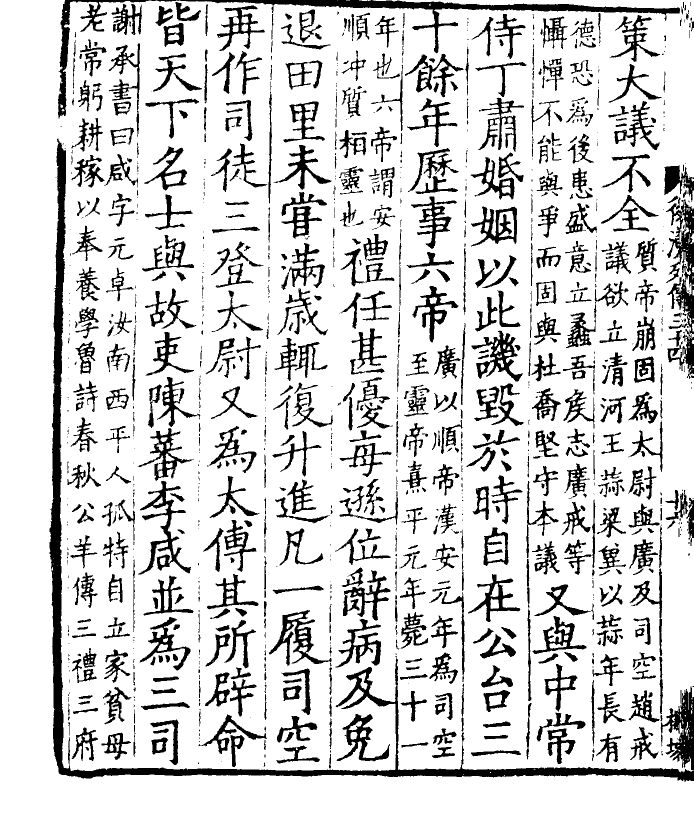 策大議不全質帝崩固爲太尉與廣及司空趙戒
議欲立清河王蒜梁冀以蒜年長有
德恐爲後患盛意立蠡吾矦志廣戒等
懾憚不能與爭而固與杜喬堅守本議又與中常
侍丁肅婚姻以此譏毀於時自在公台三
十餘年歷事六帝廣以順帝漢安元年爲司空
至靈帝熹平元年薨三十一
年也六帝謂安
順冲質桓靈也禮任甚優每遜位辭病及免
退田里未甞滿歲輒復升進凡一履司空
再作司徒三登太尉又爲太傅其所辟命
皆天下名士與故吏陳蕃李咸並爲三司
謝承書曰咸字元卓汝南西平人孤特自立家貧母
老常躬耕稼以奉養學魯詩春秋公羊傳三禮三府
後漢列傳三十四